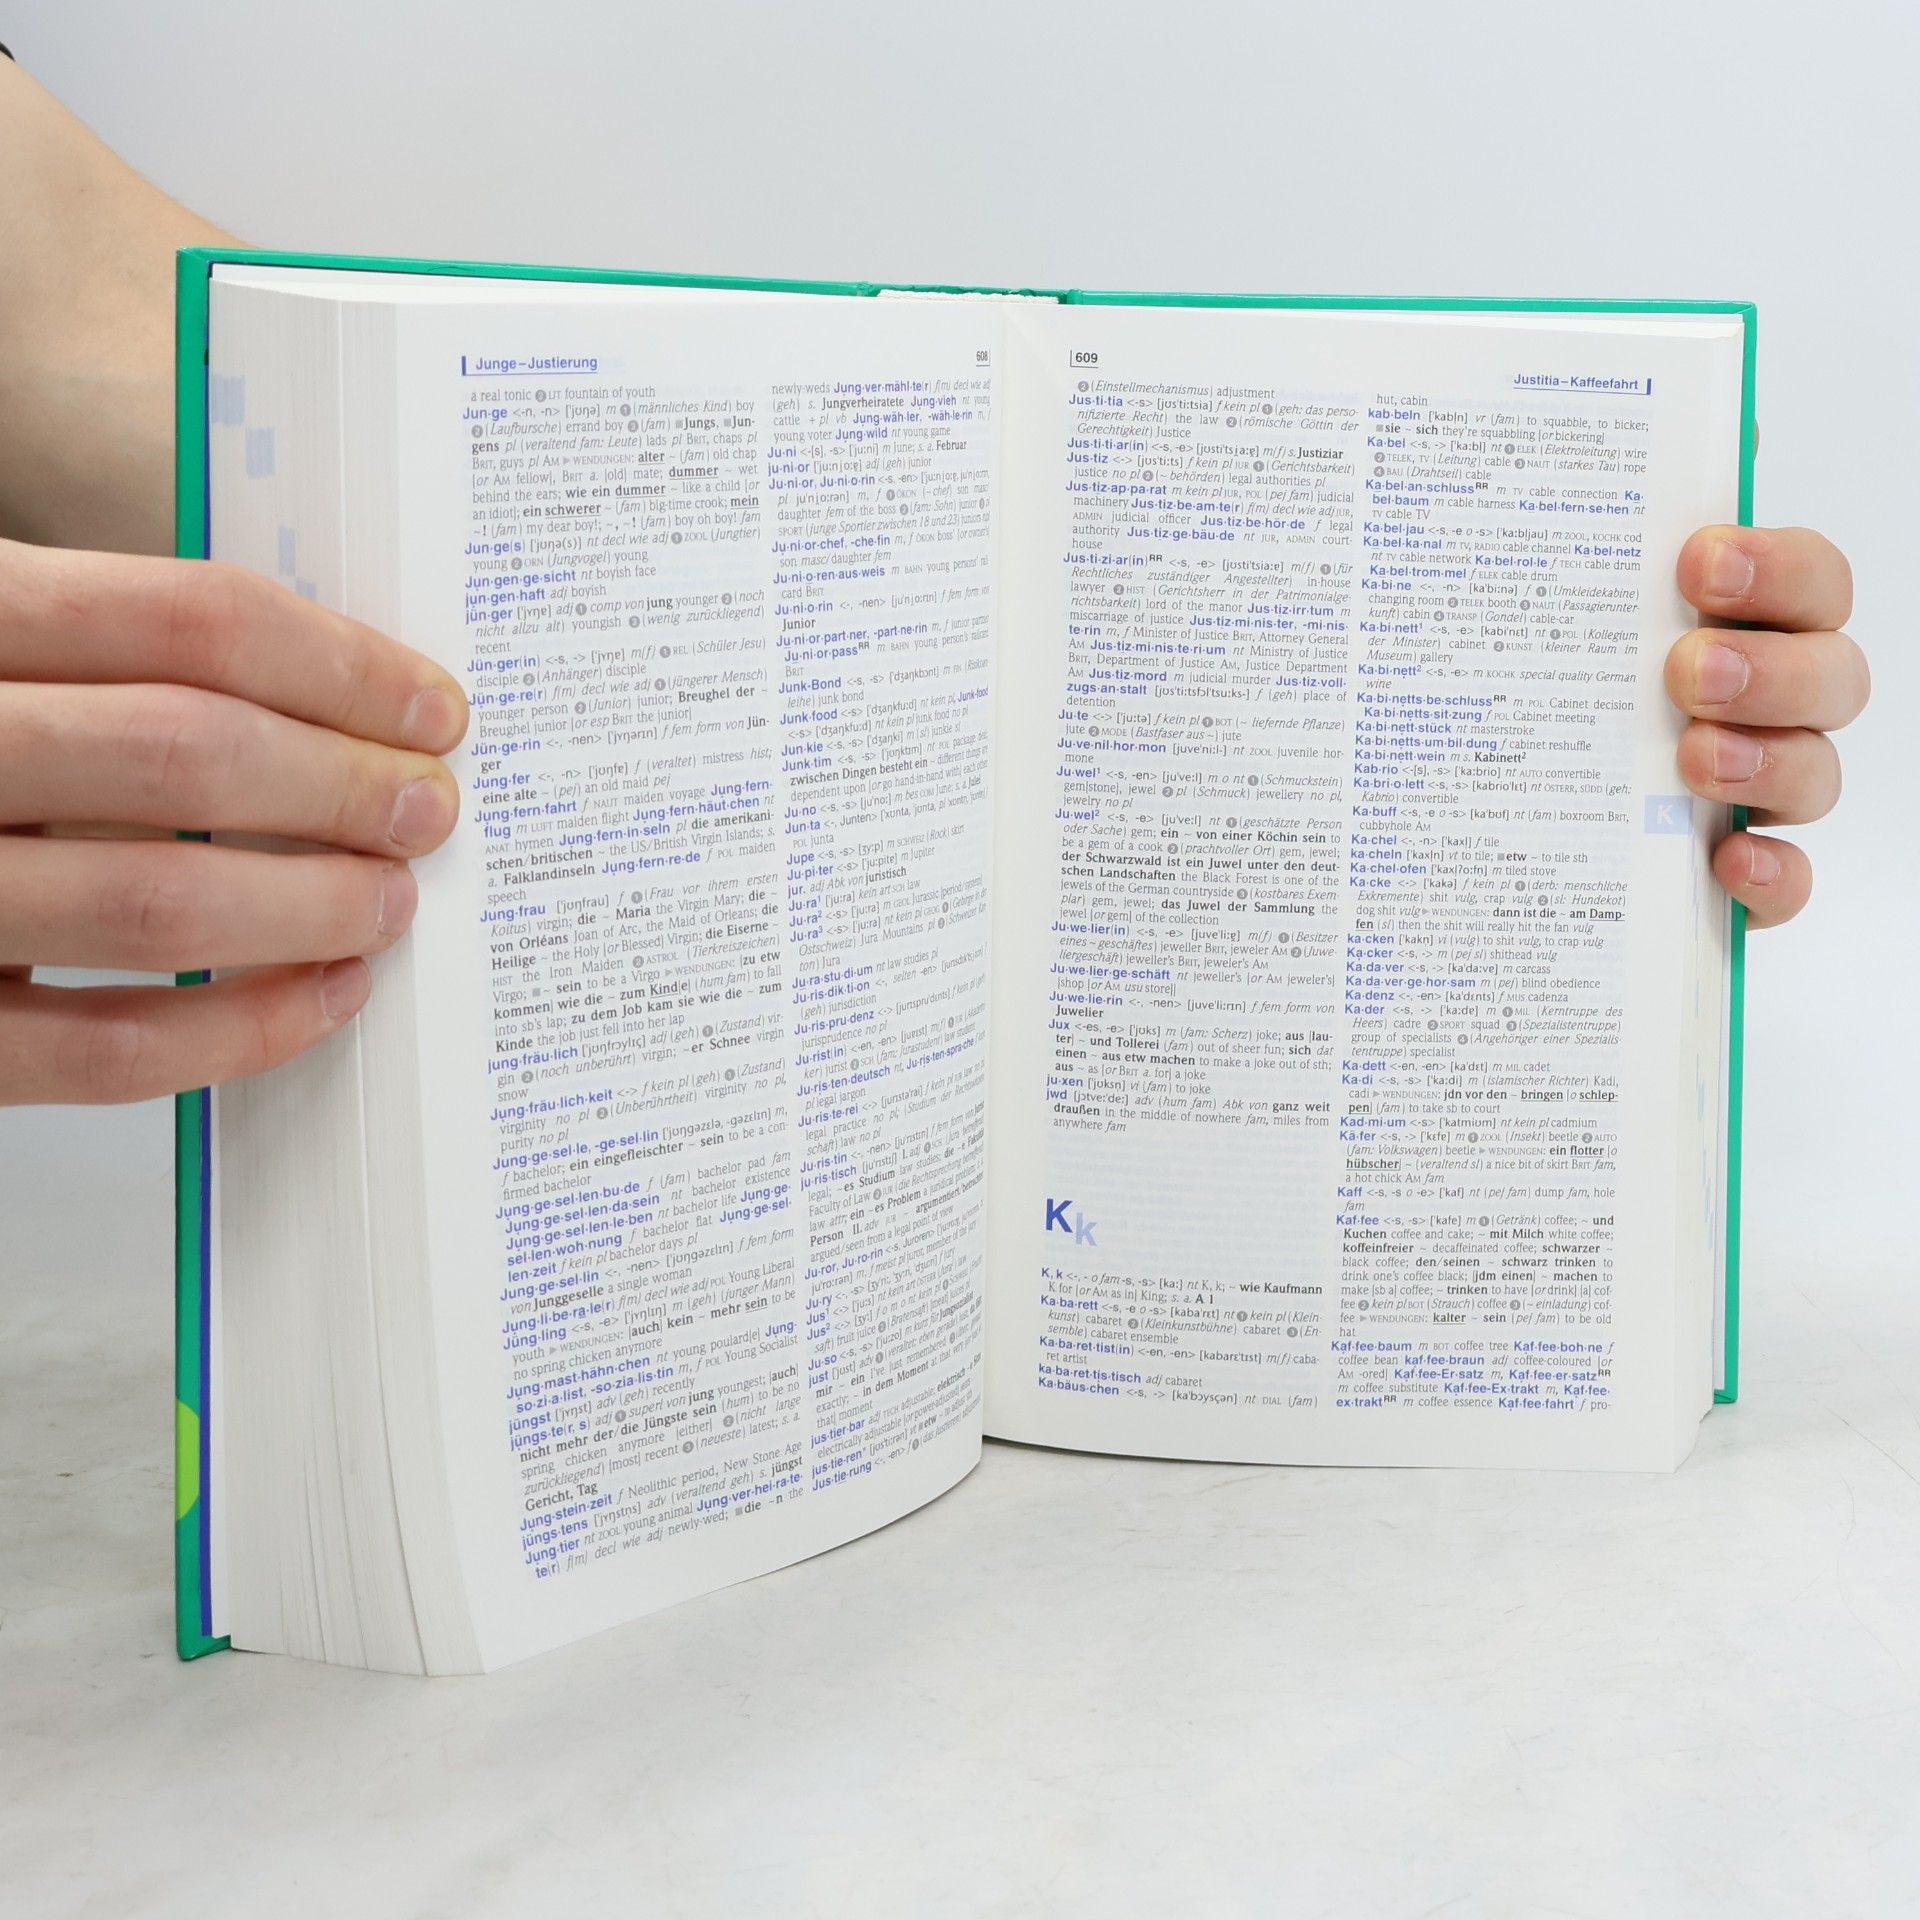 Junge–Justierung
608
a real tonic ❷ LIT fountain of youth
Jun·ge <-n, -n> ['jʊŋə] m ❶ (männliches Kind) boy
❷ (Laufbursche) errand boy ❸ (fam) ■Jungs, ■Jun-
gens pl (veraltend fam: Leute) lads pl BRIT, chaps pl
BRIT, guys pl AM ▶ WENDUNGEN: alter ~ (fam) old chap
[or AM fellow], BRIT a. [old] mate; dummer ~ wet
behind the ears; wie ein dummer ~ like a child [or
an idiot]; ein schwerer ~ (fam) big-time crook; mein
~! (fam) my dear boy!; ~, ~! (fam) boy oh boy! fam
Jun·ge(s) ['jʊŋə(s)] nt decl wie adj ❶ ZOOL (Jungtier)
young ❷ ORN (Jungvogel) young
Jun·gen·ge·sicht nt boyish face
jun·gen·haft adj boyish
jün·ger ['jʏŋɐ] adj ❶ comp von jung younger ❷ (noch
nicht allzu alt) youngish ❸ (wenig zurückliegend)
recent
Jün·ger(in) <-s, -> ['jʏŋɐ] m(f) ❶ REL (Schüler Jesu)
disciple ❷ (Anhänger) disciple
Jün·ge·re(r) f(m) decl wie adj ❶ (jüngerer Mensch)
younger person ❷ (Junior) junior; Breughel der ~
Breughel junior [or esp BRIT the junior]
Jün·ge·rin <-, -nen> ['jʏŋərɪn] f fem form von Jün-
ger
Jung·fer <-, -n> ['jʊŋfɐ] f (veraltet) mistress hist;
eine alte ~ (pej) an old maid pej
Jung·fern·fahrt f NAUT maiden voyage Jung·fern-
flug m LUFT maiden flight Jung·fern·häut·chen nt
ANAT hymen Jung·fern·in·seln pl die amerikani-
schen/britischen ~ the US/British Virgin Islands; s.
a. Falklandinseln Jung·fern·re·de f POL maiden
speech
Jung·frau ['jʊŋfrau] f ❶ (Frau vor ihrem ersten
Koitus) virgin; die ~ Maria the Virgin Mary; die ~
von Orléans Joan of Arc, the Maid of Orleans; die
Heilige ~ the Holy [or Blessed] Virgin; die Eiserne ~
HIST the Iron Maiden ❷ ASTROL (Tierkreiszeichen)
Virgo; ■~ sein to be a Virgo ▶ WENDUNGEN: [zu etw
kommen] wie die ~ zum Kind[e] (hum fam) to fall
into sb's lap; zu dem Job kam sie wie die ~ zum
Kinde the job just fell into her lap
jung·fräu·lich ['jʊŋfrɔylɪç] adj (geh) ❶ (Zustand) vir-
gin ❷ (noch unberührt) virgin; ~er Schnee virgin
snow
Jung·fräu·lich·keit <-> f kein pl (geh) ❶ (Zustand)
virginity no pl ❷ (Unberührtheit) virginity no pl,
purity no pl
Jung·ge·sel·le, -ge·sel·lin ['jʊŋgəzɛlə, -gəzɛlɪn] m,
f bachelor; ein eingefleischter ~ sein to be a con-
firmed bachelor
Jung·ge·sel·len·bu·de f (fam) bachelor pad fam
Jung·ge·sel·len·da·sein nt bachelor existence
Jung·ge·sel·len·le·ben nt bachelor life Jung·ge-
sel·len·woh·nung f bachelor flat Jung·ge·sel-
len·zeit f kein pl bachelor days pl
Jung·ge·sel·lin <-, -nen> ['jʊŋgəzɛlɪn] f fem form
von Junggeselle a single woman
Jung·li·be·ra·le(r) f(m) decl wie adj POL Young Liberal
Jüng·ling <-s, -e> ['jʏŋlɪŋ] m (geh) (junger Mann)
youth ▶ WENDUNGEN: [auch] kein ~ mehr sein to be
no spring chicken anymore
Jung·mast·hähn·chen nt young poulard[e] Jung-
so·zi·a·list, -so·zia·lis·tin m, f POL Young Socialist
jüngst ['jʏŋst] adv (geh) recently
jüngs·te(r, s) adj ❶ superl von jung youngest; [auch]
nicht mehr der/die Jüngste sein (hum) to be no
spring chicken anymore [either] ❷ (nicht lange
zurückliegend) [most] recent ❸ (neueste) latest; s. a.
Gericht, Tag
Jung·stein·zeit f Neolithic period, New Stone Age
jüngs·tens ['jʏŋstns] adv (veraltend geh) s. jüngst
Jung·tier nt ZOOL young animal Jung·ver·hei·ra·te-
te(r) f(m) decl wie adj newly-wed; ■die ~n the
newly-weds Jung·ver·mähl·te(r) f(m) decl wie adj
(geh) s. Jungverheiratete Jung·vieh nt young
cattle + pl vb Jung·wäh·ler, -wäh·le·rin m, f
young voter Jung·wild nt young game
Ju·ni <-[s], -s> ['ju:ni] m June; s. a. Februar
ju·ni·or ['ju:njo:ɐ̯] adj (geh) junior
Ju·ni·or, Ju·ni·o·rin <-s, -en>
pl m, f ❶ ÖKON (~chef) son masc
daughter fem of the boss ❷ (fam: Sohn) junior ❸ pl
SPORT (junge Sportler zwischen 18 und 23) juniors npl
Ju·ni·or·chef, -che·fin m, f ÖKON boss' [or owner's]
son masc/daughter fem
Ju·ni·o·ren·aus·weis m BAHN young persons' rail
card BRIT
Ju·ni·o·rin <-, -nen> f fem form von
Junior
Ju·ni·or·part·ner, -part·ne·rin m, f junior partner
Ju·ni·or·passRR m BAHN young person's railcard
BRIT
Junk-Bond <-s, -s> ['dʒaŋkbɔnt] m FIN (Risikoan-
leihe) junk bond
Junk·food <-s> ['dʒaŋkfu:d] nt kein pl, Junk-food
<-s> ['dʒaŋkfu:d] nt kein pl junk food no pl
Jun·kie <-s, -s> ['dʒaŋki] m (sl) junkie sl
Junk·tim <-s, -s> ['jʊŋktɪm] nt POL package deal;
zwischen Dingen besteht ein ~ different things are
dependent upon [or go hand-in-hand with] each other
Ju·no <-s, -s> ['ju:no:] m bes COM June; s. a. Juni
Jun·ta <-, Junten> ['xʊnta, 'jʊnta, pl 'xʊntn, 'jʊntn] f
POL junta
Jupe <-s, -s> [ʒy:p] m SCHWEIZ (Rock) skirt
Ju·pi·ter <-s> ['ju:pitɐ] m Jupiter
jur. adj Abk von juristisch
Ju·ra¹ ['ju:ra] kein art SCH law
Ju·ra² <-s> ['ju:ra] m GEOL Jurassic [period/system]
Ju·ra³ <-s> ['ju:ra] nt kein pl GEOG ❶ (Gebirge in der
Ostschweiz) Jura Mountains pl ❷ (Schweizer Kan-
ton) Jura
Ju·ra·stu·di·um nt law studies pl
Ju·ris·dik·ti·on <-, selten -en>
(geh) jurisdiction
Ju·ris·pru·denz <-> f kein pl (geh)
jurisprudence no pl
Ju·rist(in) <-en, -en> [juˈrɪst] m(f) ❶ JUR (Akademi-
ker) jurist ❷ SCH (fam: Jurastudent) law student
Ju·ris·ten·deutsch nt, Ju·ris·ten·spra·che f kein
pl legal jargon
Ju·ris·te·rei <-> f kein pl
legal practice no pl; (Studium der Rechtswissen-
schaft) law no pl
Ju·ris·tin <-, -nen> [juˈrɪstɪn] f fem form von Jurist
ju·ris·tisch [juˈrɪstɪʃ] I. adj ❶ SCH (Jura betreffend)
legal; ~es Studium law studies; die ~e Fakultät
Faculty of Law ❷ JUR (die Rechtsprechung betreffend)
law attr; ein ~es Problem a juridical problem; s. a.
Person II. adv JUR ~ argumentiert/betrachtet
argued/seen from a legal point of view
Ju·ror, Ju·ro·rin <-s, Juroren>
m, f meist pl juror, member of the jury
Ju·ry <-, -s> f jury
Jus¹ <-> [ju:s] nt kein art ÖSTERR (Jura) law
Jus² <-> [ʒy:] f o m o nt kein pl
saft) fruit juice ❷ (Bratensaft) [meat] juices pl
Ju·so <-s, -s> ['ju:zo] m kurz für Jungsozialist
just [jʊst] adv ❶ (veraltet: eben gerade) just; da fällt
mir ~ ein I've just remembered ❷
exactly; ~ in dem Moment at that very
that] moment
jus·tier·bar adj TECH adjustable; elektrisch ~
electrically adjustable [or power-adjusted]
jus·tie·ren* [jʊsˈti:rən] vt ■etw ~ to adjust sth
Jus·tie·rung <-, -en> f ❶ (das Justieren) adjustment
609
Justitia–Kaffeefahrt
❷ (Einstellmechanismus) adjustment
Jus·ti·tia <-s> [jʊs'ti:tsia] f kein pl ❶ (geh: das perso-
nifizierte Recht) the law ❷ (römische Göttin der
Gerechtigkeit) Justice
Jus·ti·ti·ar(in) <-s, -e> [jʊsti'tsia:ɐ̯] m(f) s. Justiziar
Jus·tiz <-> [jʊs'ti:ts] f kein pl JUR ❶ (Gerichtsbarkeit)
justice no pl ❷ (~ behörden) legal authorities pl
Jus·tiz·ap·pa·rat m kein pl JUR, POL (pej fam) judicial
machinery Jus·tiz·be·am·te(r) f(m) decl wie adj JUR,
ADMIN judicial officer Jus·tiz·be·hör·de f legal
authority Jus·tiz·ge·bäu·de nt JUR, ADMIN court-
house
Jus·ti·zi·ar(in)RR <-s, -e> [jʊsti'tsia:ɐ̯] m(f) ❶ (für
Rechtliches zuständiger Angestellter) in-house
lawyer ❷ HIST (Gerichtsherr in der Patrimonialge-
richtsbarkeit) lord of the manor Jus·tiz·irr·tum m
miscarriage of justice Jus·tiz·mi·nis·ter, -mi·nis-
te·rin m, f Minister of Justice BRIT, Attorney General
AM Jus·tiz·mi·nis·te·ri·um nt Ministry of Justice
BRIT, Department of Justice AM, Justice Department
AM Jus·tiz·mord m judicial murder Jus·tiz·voll-
zugs·an·stalt [jʊs'ti:tsfɔl'tsu:ks-] f (geh) place of
detention
Ju·te <-> ['ju:tə] f kein pl ❶ BOT (~ liefernde Pflanze)
jute ❷ MODE (Bastfaser aus ~) jute
Ju·ve·nil·hor·mon [juve'ni:l-] nt ZOOL juvenile hor-
mone
Ju·wel¹ <-s, -en> [ju've:l] m o nt ❶ (Schmuckstein)
gem[stone], jewel ❷ pl (Schmuck) jewellery no pl,
jewelry no pl
Ju·wel² <-s, -e> [ju've:l] nt ❶ (geschätzte Person
oder Sache) gem; ein ~ von einer Köchin sein to
be a gem of a cook ❷ (prachtvoller Ort) gem, jewel;
der Schwarzwald ist ein Juwel unter den deut-
schen Landschaften the Black Forest is one of the
jewels of the German countryside ❸ (kostbares Exem-
plar) gem, jewel; das Juwel der Sammlung the
jewel [or gem] of the collection
Ju·we·lier(in) <-s, -e> [juve'li:ɐ̯] m(f) ❶ (Besitzer
eines ~ geschäftes) jeweller BRIT, jeweler AM ❷ (Juwe-
liergeschäft) jeweller's BRIT, jeweler's AM
Ju·we·lier·ge·schäft nt jeweller's [or AM jeweler's]
[shop [or AM usu store]]
Ju·we·lie·rin <-, -nen> [juve'li:rɪn] f fem form von
Juwelier
Jux <-es, -e> ['jʊks] m (fam: Scherz) joke; aus [lau-
ter] ~ und Tollerei (fam) out of sheer fun; sich dat
einen ~ aus etw machen to make a joke out of sth;
aus ~ as [or BRIT a. for] a joke
ju·xen ['jʊksn] vi (fam) to joke
jwd [jɔtve:'de:] adv (hum fam) Abk von ganz weit
draußen in the middle of nowhere fam, miles from
anywhere fam
Kk
K, k <-, - o fam -s, -s> [ka:] nt K, k; ~ wie Kaufmann
K for [or AM as in] King; s. a. A 1
Ka·ba·rett <-s, -e o -s> [kaba'rɛt] nt ❶ kein pl (Klein-
kunst) cabaret ❷ (Kleinkunstbühne) cabaret ❸ (En-
semble) cabaret ensemble
Ka·ba·ret·tist(in) <-en, -en> [kabarɛ'tɪst] m(f) caba-
ret artist
ka·ba·ret·tis·tisch adj cabaret
Ka·bäus·chen <-s, -> [ka'bɔysçən] nt DIAL (fam)
hut, cabin
kab·beln ['kabln] vr (fam) to squabble, to bicker;
■sie ~ sich they're squabbling [or bickering]
Ka·bel <-s, -> ['ka:bl] nt ❶ ELEK (Elektroleitung) wire
❷ TELEK, TV (Leitung) cable ❸ NAUT (starkes Tau) rope
❹ BAU (Drahtseil) cable
Ka·bel·an·schlussRR m TV cable connection Ka-
bel·baum m cable harness Ka·bel·fern·se·hen nt
TV cable TV
Ka·bel·jau <-s, -e o -s> ['ka:bljau] m ZOOL, KOCHK cod
Ka·bel·ka·nal m TV, RADIO cable channel Ka·bel·netz
nt TV cable network Ka·bel·rol·le f TECH cable drum
Ka·bel·trom·mel f ELEK cable drum
Ka·bi·ne <-, -n> [ka'bi:nə] f ❶ (Umkleidekabine)
changing room ❷ TELEK booth ❸ NAUT (Passagierunter-
kunft) cabin ❹ TRANSP (Gondel) cable-car
Ka·bi·nett¹ <-s, -e> [kabi'nɛt] nt ❶ POL (Kollegium
der Minister) cabinet ❷ KUNST (kleiner Raum im
Museum) gallery
Ka·bi·nett² <-s, -e> m KOCHK special quality German
wine
Ka·bi·netts·be·schlussRR m POL Cabinet decision
Ka·bi·netts·sit·zung f POL Cabinet meeting
Ka·bi·nett·stück nt masterstroke
Ka·bi·netts·um·bil·dung f cabinet reshuffle
Ka·bi·nett·wein m s. Kabinett²
Kab·rio <-[s], -s> ['ka:brio] nt AUTO convertible
Ka·bri·o·lett <-s, -s> [kabrio'lɛt] nt ÖSTERR, SÜDD (geh:
Kabrio) convertible
Ka·buff <-s, -e o -s> [ka'bʊf] nt (fam) boxroom BRIT,
cubbyhole AM
Ka·chel <-, -n> ['kaxl] f tile
ka·cheln ['kaxln] vt to tile; ■etw ~ to tile sth
Ka·chel·ofen ['kaxl?o:fn] m tiled stove
Ka·cke <-> ['kakə] f kein pl ❶ (derb: menschliche
Exkremente) shit vulg, crap vulg ❷ (sl: Hundekot)
dog shit vulg ▶ WENDUNGEN: dann ist die ~ am Damp-
fen (sl) then the shit will really hit the fan vulg
ka·cken ['kakn] vi (vulg) to shit vulg, to crap vulg
Ka·cker <-s, -> m (pej sl) shithead vulg
Ka·da·ver <-s, -> [ka'da:vɐ] m carcass
Ka·da·ver·ge·hor·sam m (pej) blind obedience
Ka·denz <-, -en> [ka'dɛnts] f MUS cadenza
Ka·der <-s, -> ['ka:dɐ] m ❶ MIL (Kerntruppe des
Heers) cadre ❷ SPORT squad ❸ (Spezialistentruppe)
group of specialists ❹ (Angehöriger einer Spezialis-
tentruppe) specialist
Ka·dett <-en, -en> [ka'dɛt] m MIL cadet
Ka·di <-s, -s> ['ka:di] m (islamischer Richter) Kadi,
cadi ▶ WENDUNGEN: jdn vor den ~ bringen [o schlep-
pen] (fam) to take sb to court
Kad·mi·um <-s> ['katmiʊm] nt kein pl cadmium
Kä·fer <-s, -> ['kɛfɐ] m ❶ ZOOL (Insekt) beetle ❷ AUTO
(fam: Volkswagen) beetle ▶ WENDUNGEN: ein flotter [o
hübscher] ~ (veraltend sl) a nice bit of skirt BRIT fam,
a hot chick AM fam
Kaff <-s, -s o -e> ['kaf] nt (pej fam) dump fam, hole
fam
Kaf·fee <-s, -s> ['kafe] m ❶ (Getränk) coffee; ~ und
Kuchen coffee and cake; ~ mit Milch white coffee;
koffeinfreier ~ decaffeinated coffee; schwarzer ~
black coffee; den/seinen ~ schwarz trinken to
drink one's coffee black; [jdm einen] ~ machen to
make [sb a] coffee; ~ trinken to have [or drink] [a] cof-
fee ❷ kein pl BOT (Strauch) coffee ❸ (~ einladung) cof-
fee ▶ WENDUNGEN: kalter ~ sein (pej fam) to be old
hat
Kaf·fee·baum m BOT coffee tree Kaf·fee·boh·ne f
coffee bean kaf·fee·braun adj coffee-coloured [or
AM -ored] Kaf·fee-Er·satz m, Kaf·fee·er·satzRR
m coffee substitute Kaf·fee-Ex·trakt m, Kaf·fee-
ex·traktRR m coffee essence Kaf·fee·fahrt f pro-
K